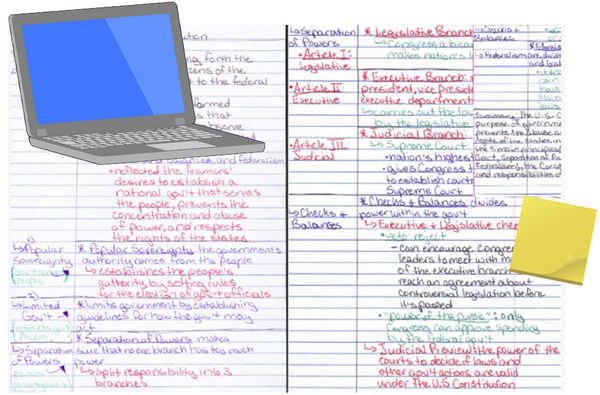 ution
forth the
zens of the
to the federal
ormed
s that
serve
and balances, and federalism
• reflected the framers'
desires to establish a
national gov't that serves
the people, prevents the
concentration and abuse
of power, and respects
the rights of the states
↳ Popular
Sovereignty
people
* Popular Sovereignty: the government's
authority comes from the people
↳ establishes the people's
authority by setting rules
for the election of gov't officials
↳ Limited
Gov't
powers
* limits government by establishing
guidelines for how the gov't may
act
↳ Separation
of Powers
* Separation of Powers: makes
sure that no one branch has too much
power
↳ split responsibility into 3
branches
↳ Separation
of Powers
• Article I:
Legislative
• Article II:
Executive
• Article III:
Judicial
* Legislative Branch
↳ Congress, a bica
makes nation's l
* Executive Branch:
president, vice presid
executive department
↳ carries out the la
by the legislative
* Judicial Branch:
↳ Supreme Court
• nation's highest
• gives Congress t
to establish court
Supreme Court
↳ Checks +
Balances
* Checks + Balances: divides
power within the gov't
↳ Executive + Legislative chec
• veto: reject
- can encourage Congre
leaders to meet with m
of the executive branch
reach an agreement about
controversial legislation before
it's passed
• "power of the purse": only
Congress can approve spending
by the federal gov't
↳ Judicial Review: the power of the
courts to decide if laws and
other gov't actions are valid
under the U.S Constitution
↳ Checks +
Balances
↳ Federalism
and local
Summary: The U.S. C